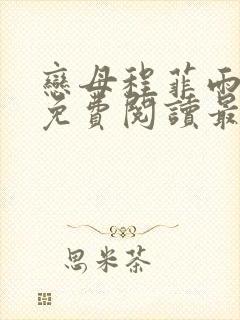 戀母程菲雨
免費閱讀最
思米茶